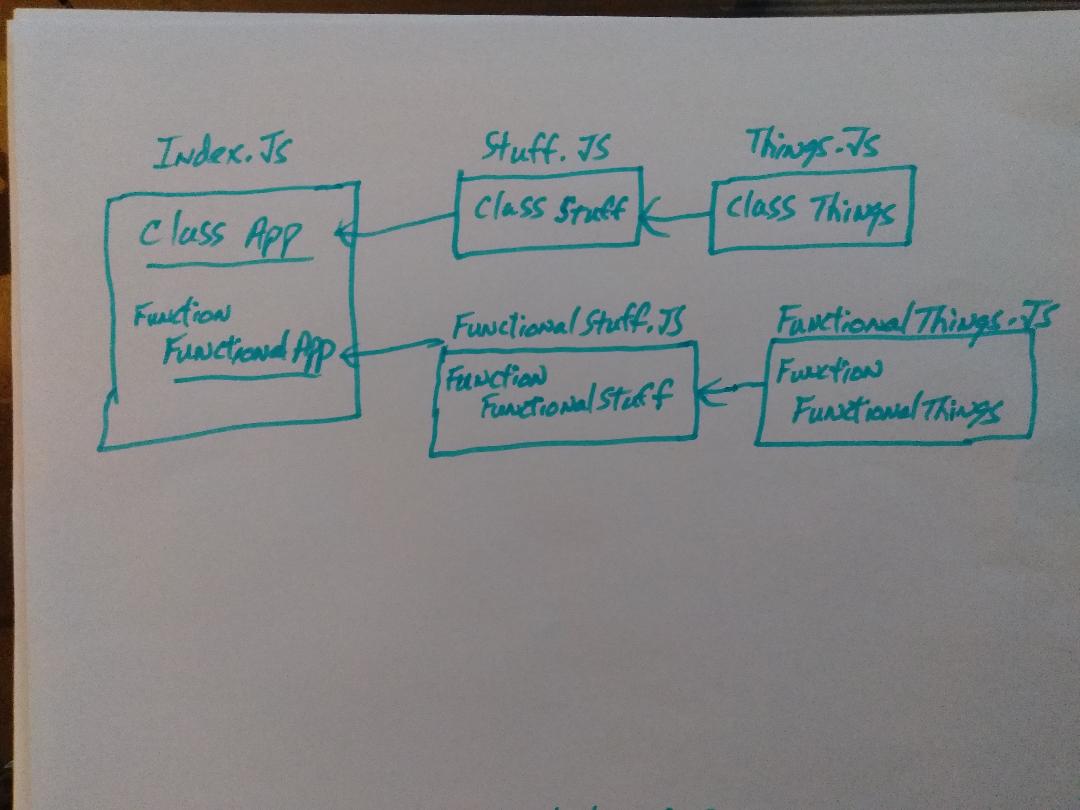 Index.Js
Class App
Function
FunctionalApp
Stuff.JS
Class Stuff
Things.Js
Class Things
FunctionalStuff.JS
Function
FunctionalStuff
FunctionalThings.Js
Function
FunctionalThings